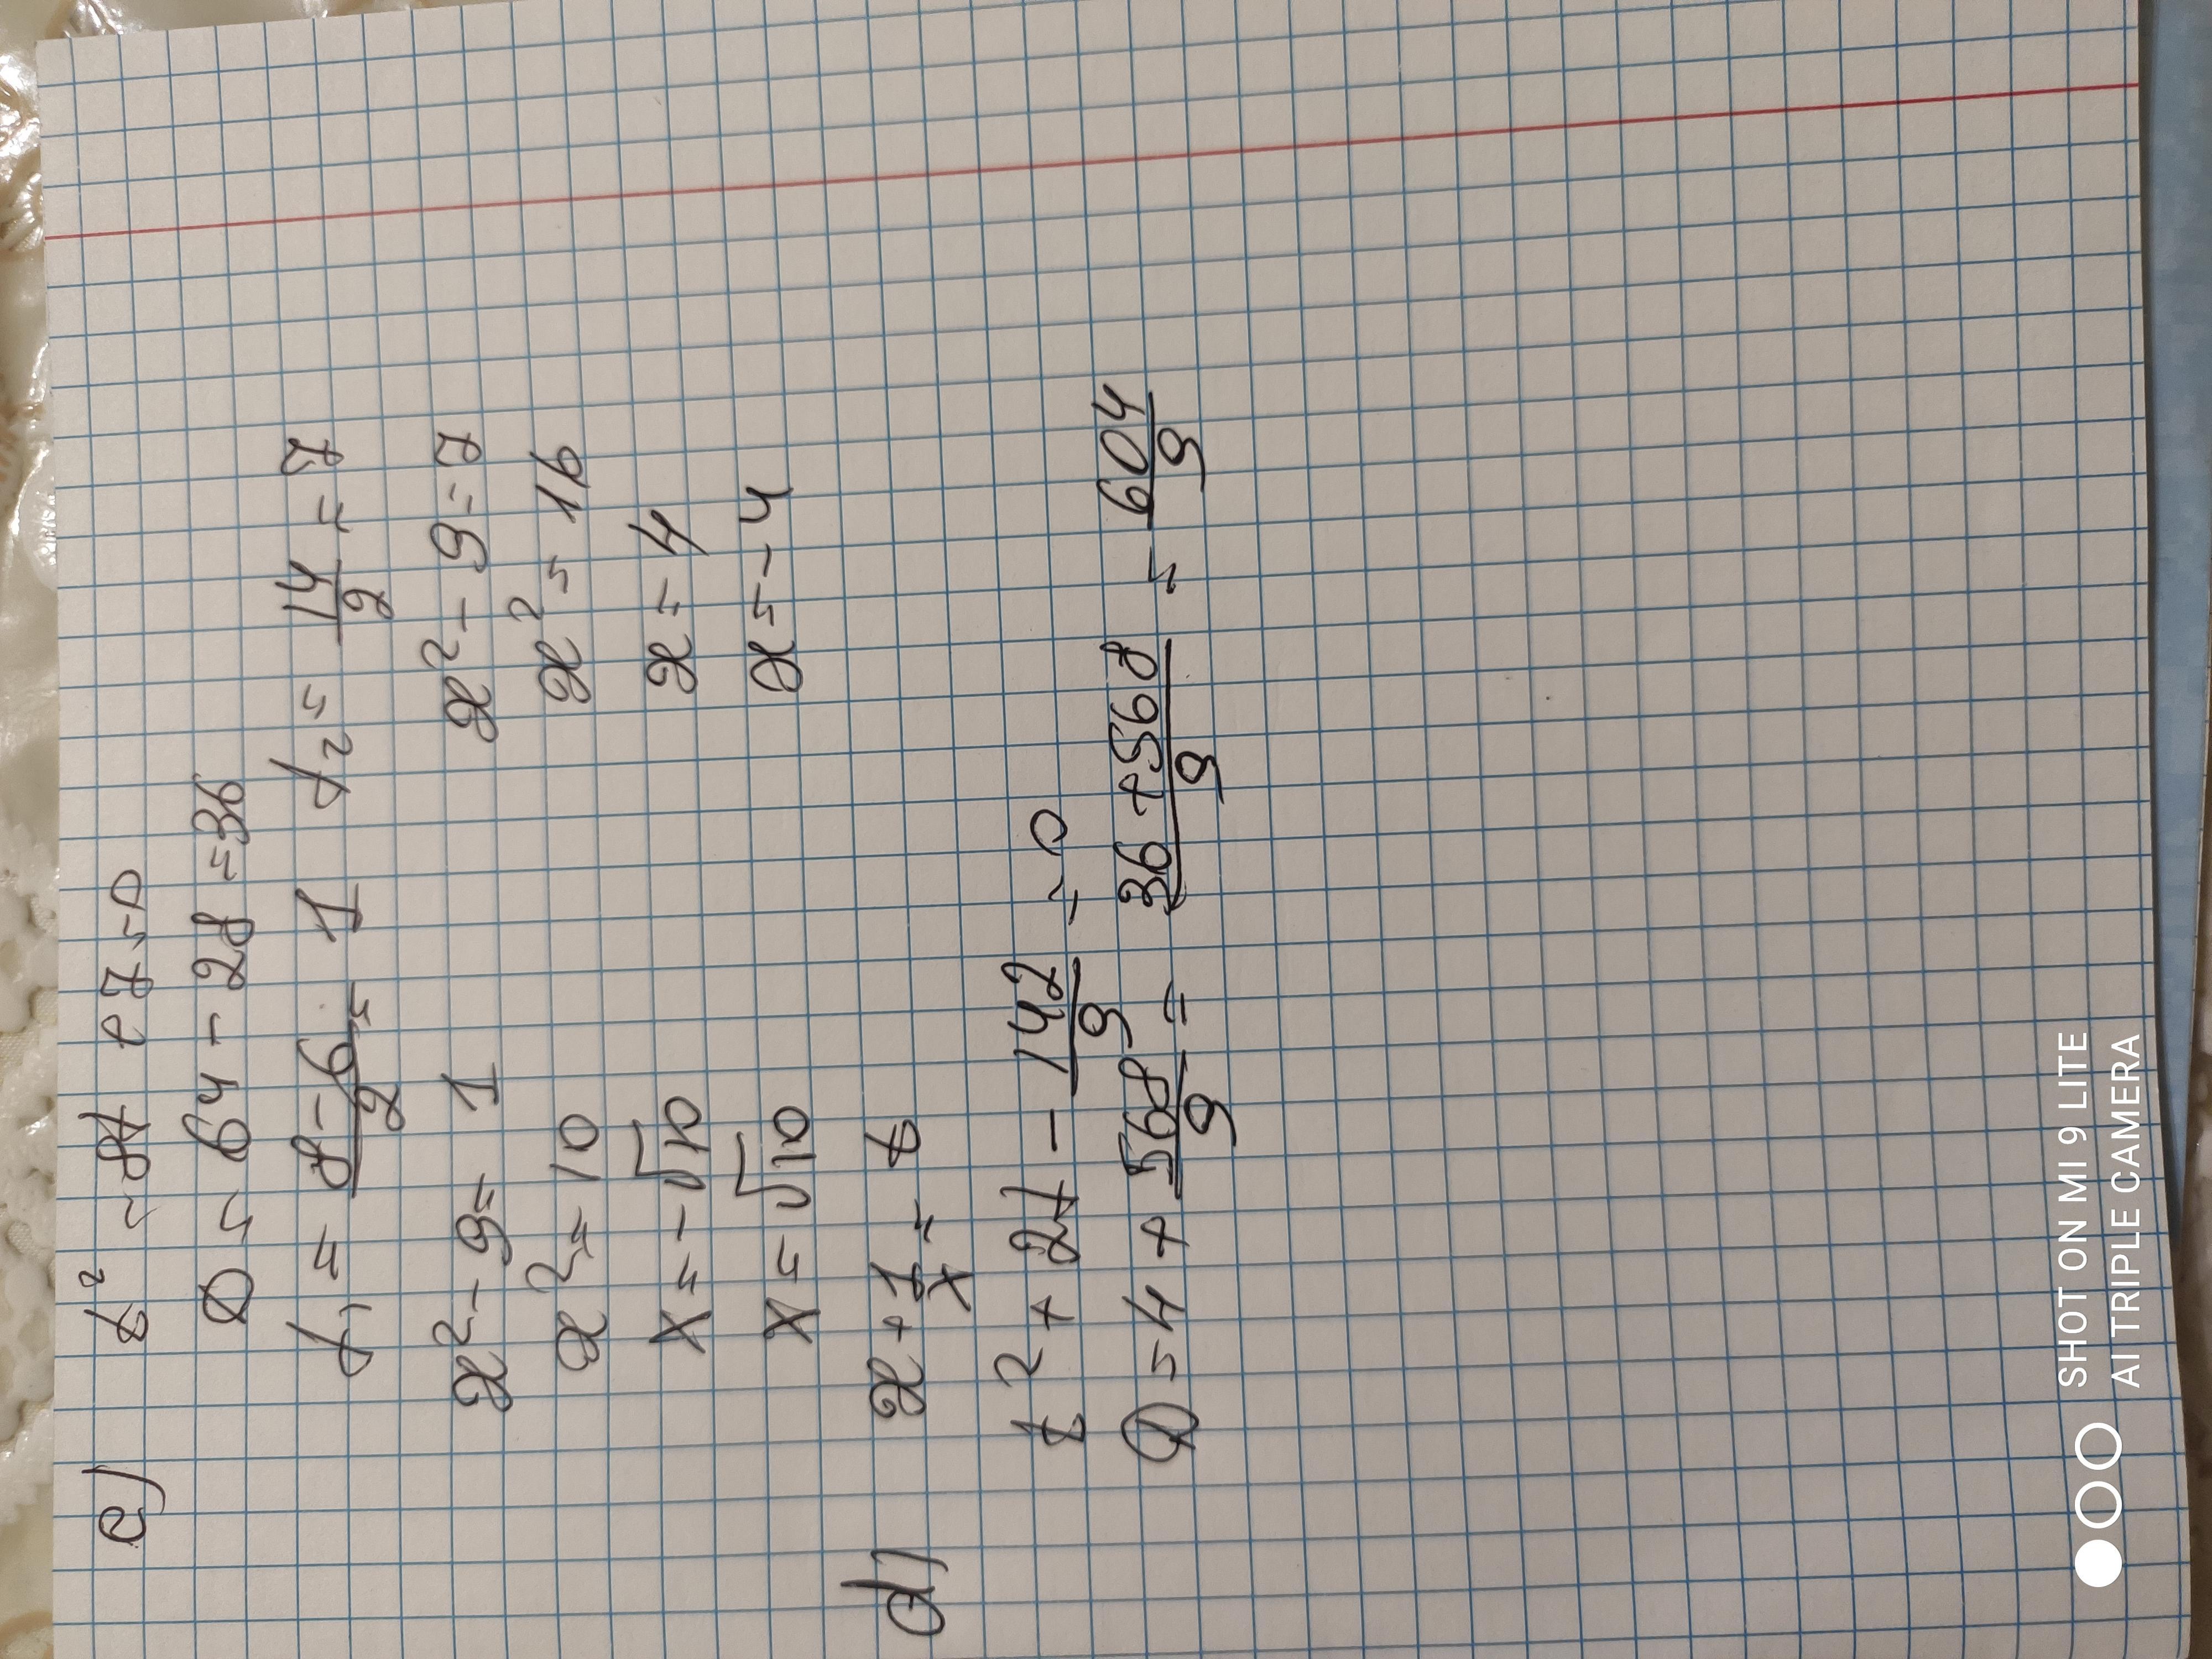 c) t² - 8t + 7 = 0
D = 64 - 28 = 36
t₁ = (8-6)/2 = 1 t₂ = 14/2 = 7
x² - 9 = 1 x² - 9 = 7
x² = 10 x² = 16
x = -√10 x = 4
x = √10 x = -4
d) x + 1/x = t
t² + 2t - 142/9 = 0
D = 4 + 568/9 = (36 + 568)/9 = 604/9
SHOT ON MI 9 LITE
AI TRIPLE CAMERA